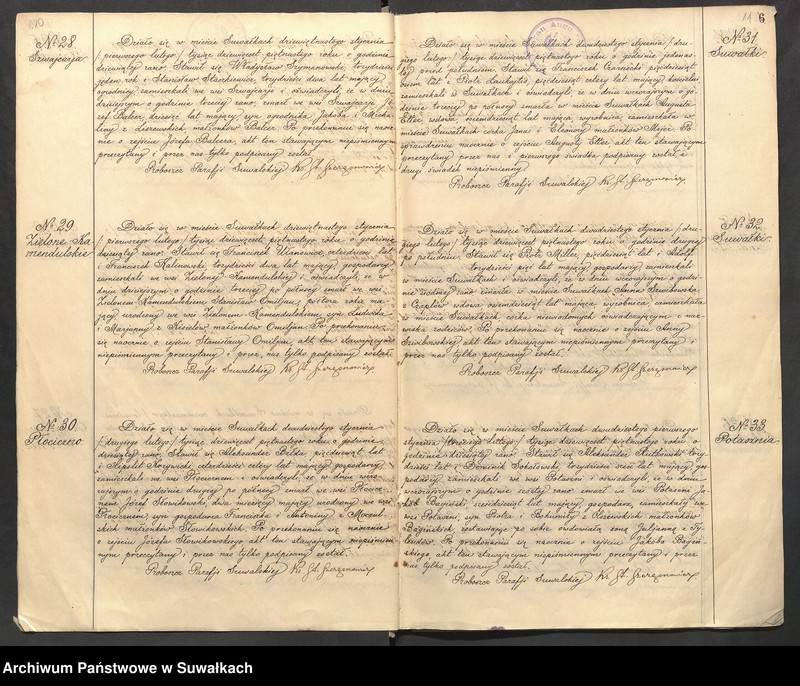 № 28
Szwajcarja
Działo się w mieście Suwałkach dziewiętnastego stycznia
/ pierwszego lutego / tysiąc dziewięćset piętnastego roku o godzinie
dziewiątej rano. Stawił się Władysław Szymanowski, trzydzieści
jeden rok i Stanisław Starkiewicz, trzydzieści dwa lat mający,
ogrodnicy zamieszkali we wsi Szwajcarji i oświadczyli, że w dniu
dzisiejszym o godzinie trzeciej rano, zmarł we wsi Szwajcarji Jó-
zef Balcer, dziesięć lat mający syn ogrodnika Jakóba i Micha-
liny z małżonków Balcer. Po przekonaniu się naocz-
nie o zejściu Józefa Balcera, akt ten stawającym niepiśmiennym
przeczytany i przez nas tylko podpisany został.
Proboszcz Parafji Suwalskiej Ks. St.
№ 29
Zielone Ka-
mendulskie
Działo się w mieście Suwałkach dziewiętnastego stycznia
/ pierwszego lutego / tysiąc dziewięćset piętnastego roku o godzinie
dziesiątej rano. Stawił się Franciszek Ułanowicz, czterdzieści lat
i Franciszek Kalinowski, trzydzieści dwa lat mający, gospodarze
zamieszkali we wsi Zielonem Kamendulskiem i oświadczyli, że w
dniu dzisiejszym o godzinie trzeciej po północy zmarł we wsi
Zielonem Kamendulskiem Stanisław Omiljan, półtora roku ma-
jący, urodzony we wsi Zielonem-Kamendulskiem, syn Ludwika
i Marjanny z małżonków Omiljan. Po przekonaniu
się naocznie o zejściu Stanisława Omiljan, akt ten stawającym
niepiśmiennym przeczytany i przez nas tylko podpisany został.
Proboszcz Parafji Suwalskiej Ks. St.
№ 30
Płociczno
Działo się w mieście Suwałkach dwudziestego stycznia
/ drugiego lutego / tysiąc dziewięćset piętnastego roku o godzinie
dziewiątej rano. Stawił się Aleksander Bełda, pięćdziesiąt lat
i Hipolit czterdzieści cztery lat mający gospodarze,
zamieszkali we wsi Płocicznem i oświadczyli, że w dniu wczo-
rajszym o godzinie drugiej po północy zmarł we wsi Płocicz-
nem Józef Słowikowski, dwa miesiące mający, urodzony we wsi
Płocicznem, syn gospodarza Franciszka i Antoniny z
małżonków Słowikowskich. Po przekonaniu się naocznie
o zejściu Józefa Słowikowskiego akt ten stawającym niepiśmien-
nym przeczytany i przez nas tylko podpisany został.
Proboszcz Parafji Suwalskiej Ks. St.
11 6
№ 31
Suwałki
Działo się w mieście Suwałkach dwudziestego stycznia / dru-
giego lutego / tysiąc dziewięćset piętnastego roku o godzinie jedenas-
tej przed południem. Stawił się Franciszek Czarnecki, pięćdziesiąt
osiem lat i Piotr pięćdziesiąt cztery lat mający
zamieszkali w Suwałkach i oświadczyli, że w dniu wczorajszym o go-
dzinie trzeciej po północy zmarła w mieście Suwałkach Augusta
wdowa, osiemdziesiąt lat mająca, wyrobnica, zamieszkała w
mieście Suwałkach córka Jana i Eleonory małżonków Mejer. Po
sprawdzeniu naocznie o zejściu Augusty akt ten stawającym
przeczytany przez nas i pierwszego świadka podpisany został, a
drugi świadek niepiśmienny.
Proboszcz Parafji Suwalskiej Ks. St.
№ 32
Suwałki
Działo się w mieście Suwałkach dwudziestego stycznia / dru-
giego lutego / tysiąc dziewięćset piętnastego roku o godzinie drugiej
po południu. Stawił się Piotr Miller, pięćdziesiąt lat i Adolf
trzydzieści pięć lat mający, gospodarze, zamieszkali
w mieście Suwałkach i oświadczyli, że w dniu wczorajszym o godzi-
nie siódmej rano zmarła w mieście Suwałkach Anna
z wdowa osiemdziesiąt lat mająca, wyrobnica, zamieszkała
w mieście Suwałkach, córka niewiadomych oświadczającym z naz-
wiska rodziców. Po przekonaniu się naocznie o zejściu Anny
akt ten stawającym niepiśmiennym przeczytany i
przez nas tylko podpisany został.
Proboszcz Parafji Suwalskiej Ks. St.
№ 33
Działo się w mieście Suwałkach dwudziestego pierwszego
stycznia / trzeciego lutego / tysiąc dziewięćset piętnastego roku o
godzinie dziesiątej rano. Stawił się Aleksander trzy-
dzieści lat i Dominik Sokołowski, trzydzieści lat mający gos-
podarze zamieszkali we wsi i oświadczyli, że w dniu
wczorajszym o godzinie szóstej rano zmarł we wsi Ja-
kób sześćdziesiąt lat mający, gospodarz, zamieszkały we
wsi syn Piotra i małżonków
zostawiając po sobie owdowiałą żonę Juljannę z
Po przekonaniu się naocznie o zejściu Jakóba
akt ten stawającym niepiśmiennym przeczytany i przez
nas tylko podpisany został.
Proboszcz Parafji Suwalskiej Ks. St.
Archiwum Państwowe w Suwałkach